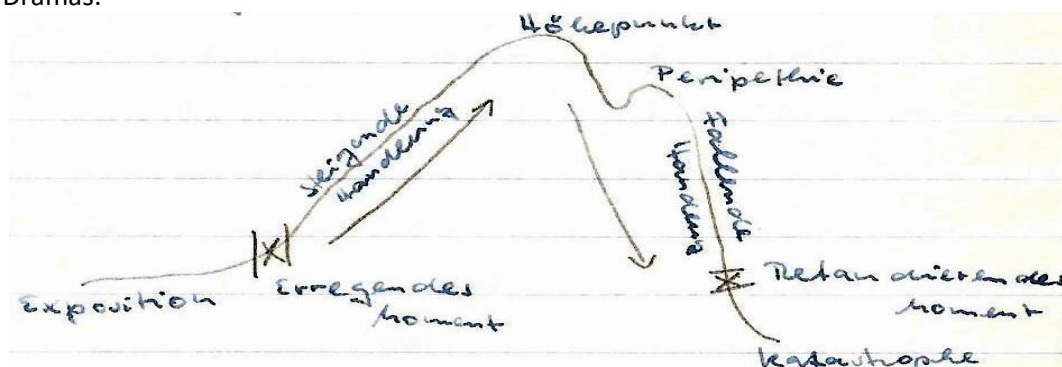 Dramas:
Höhepunkt
Peripethie
Steigende
Handlung
Fallende
Handlung
Exposition
Erregendes
Moment
Retardierendes
Moment
Katastrophe